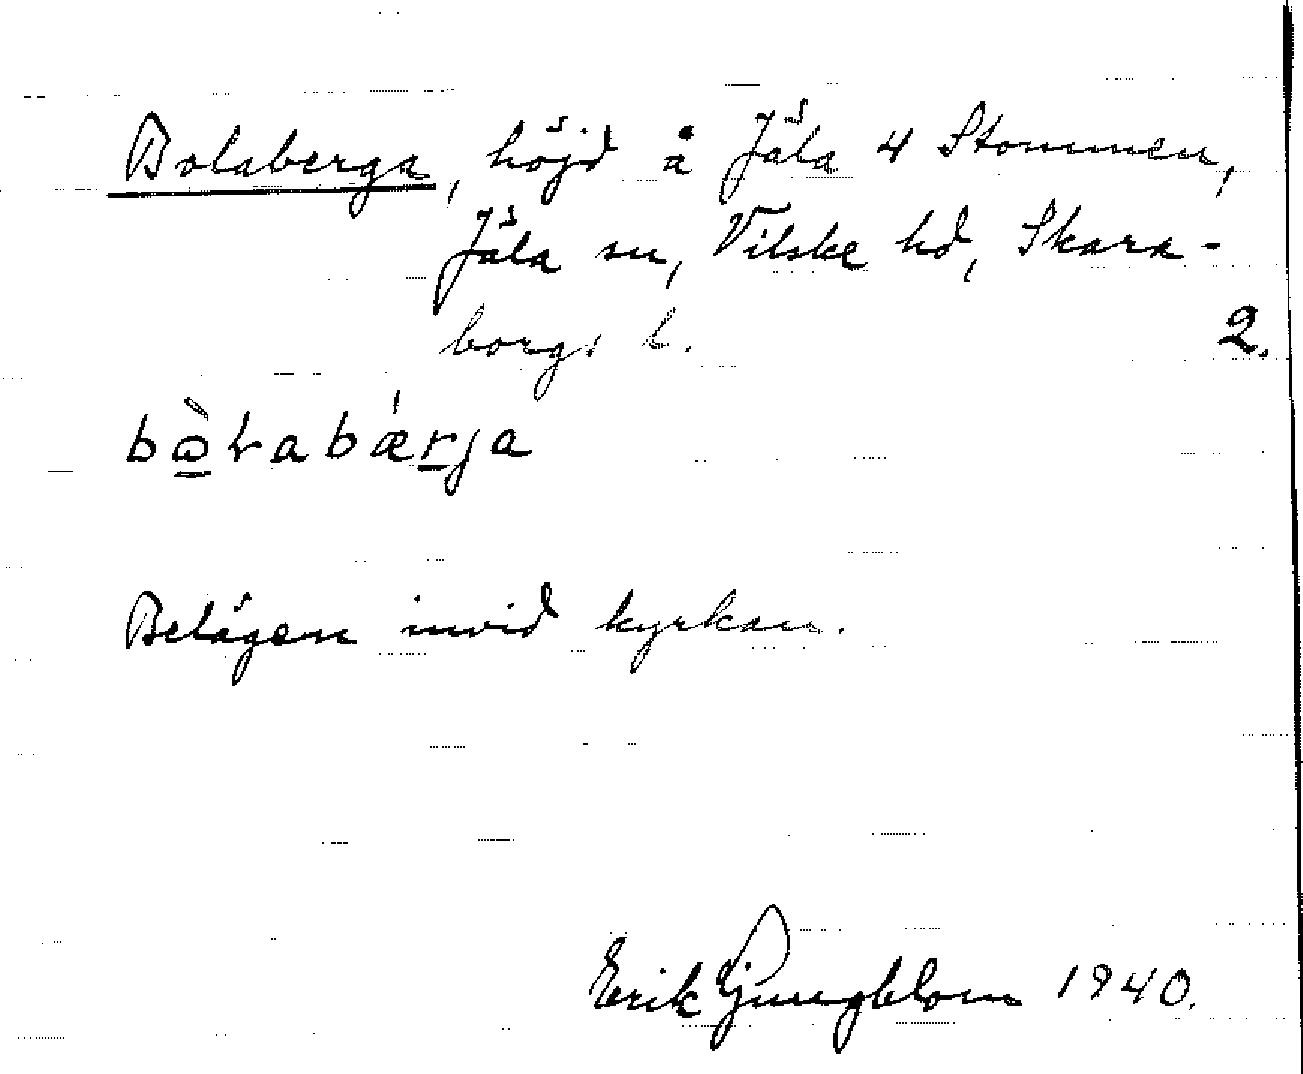 Bolaberga, höjd å Jäla 4 Stommen,
Jäla sn, Vilske hd, Skara-
borgs l. 2.
bòlabǽrja
Belägen invid kyrkan.
Erik Ljungblom 1940.